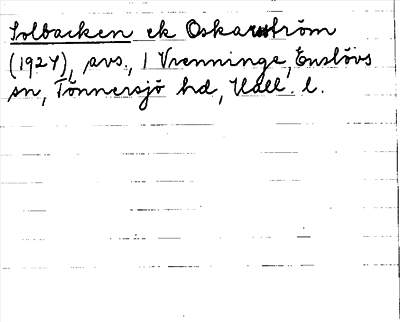 Solbacken ek Oskarström
(1927), avs., 1 Vrenninge, Enslövs
sn, Tönnersjö hd, Hall. l.